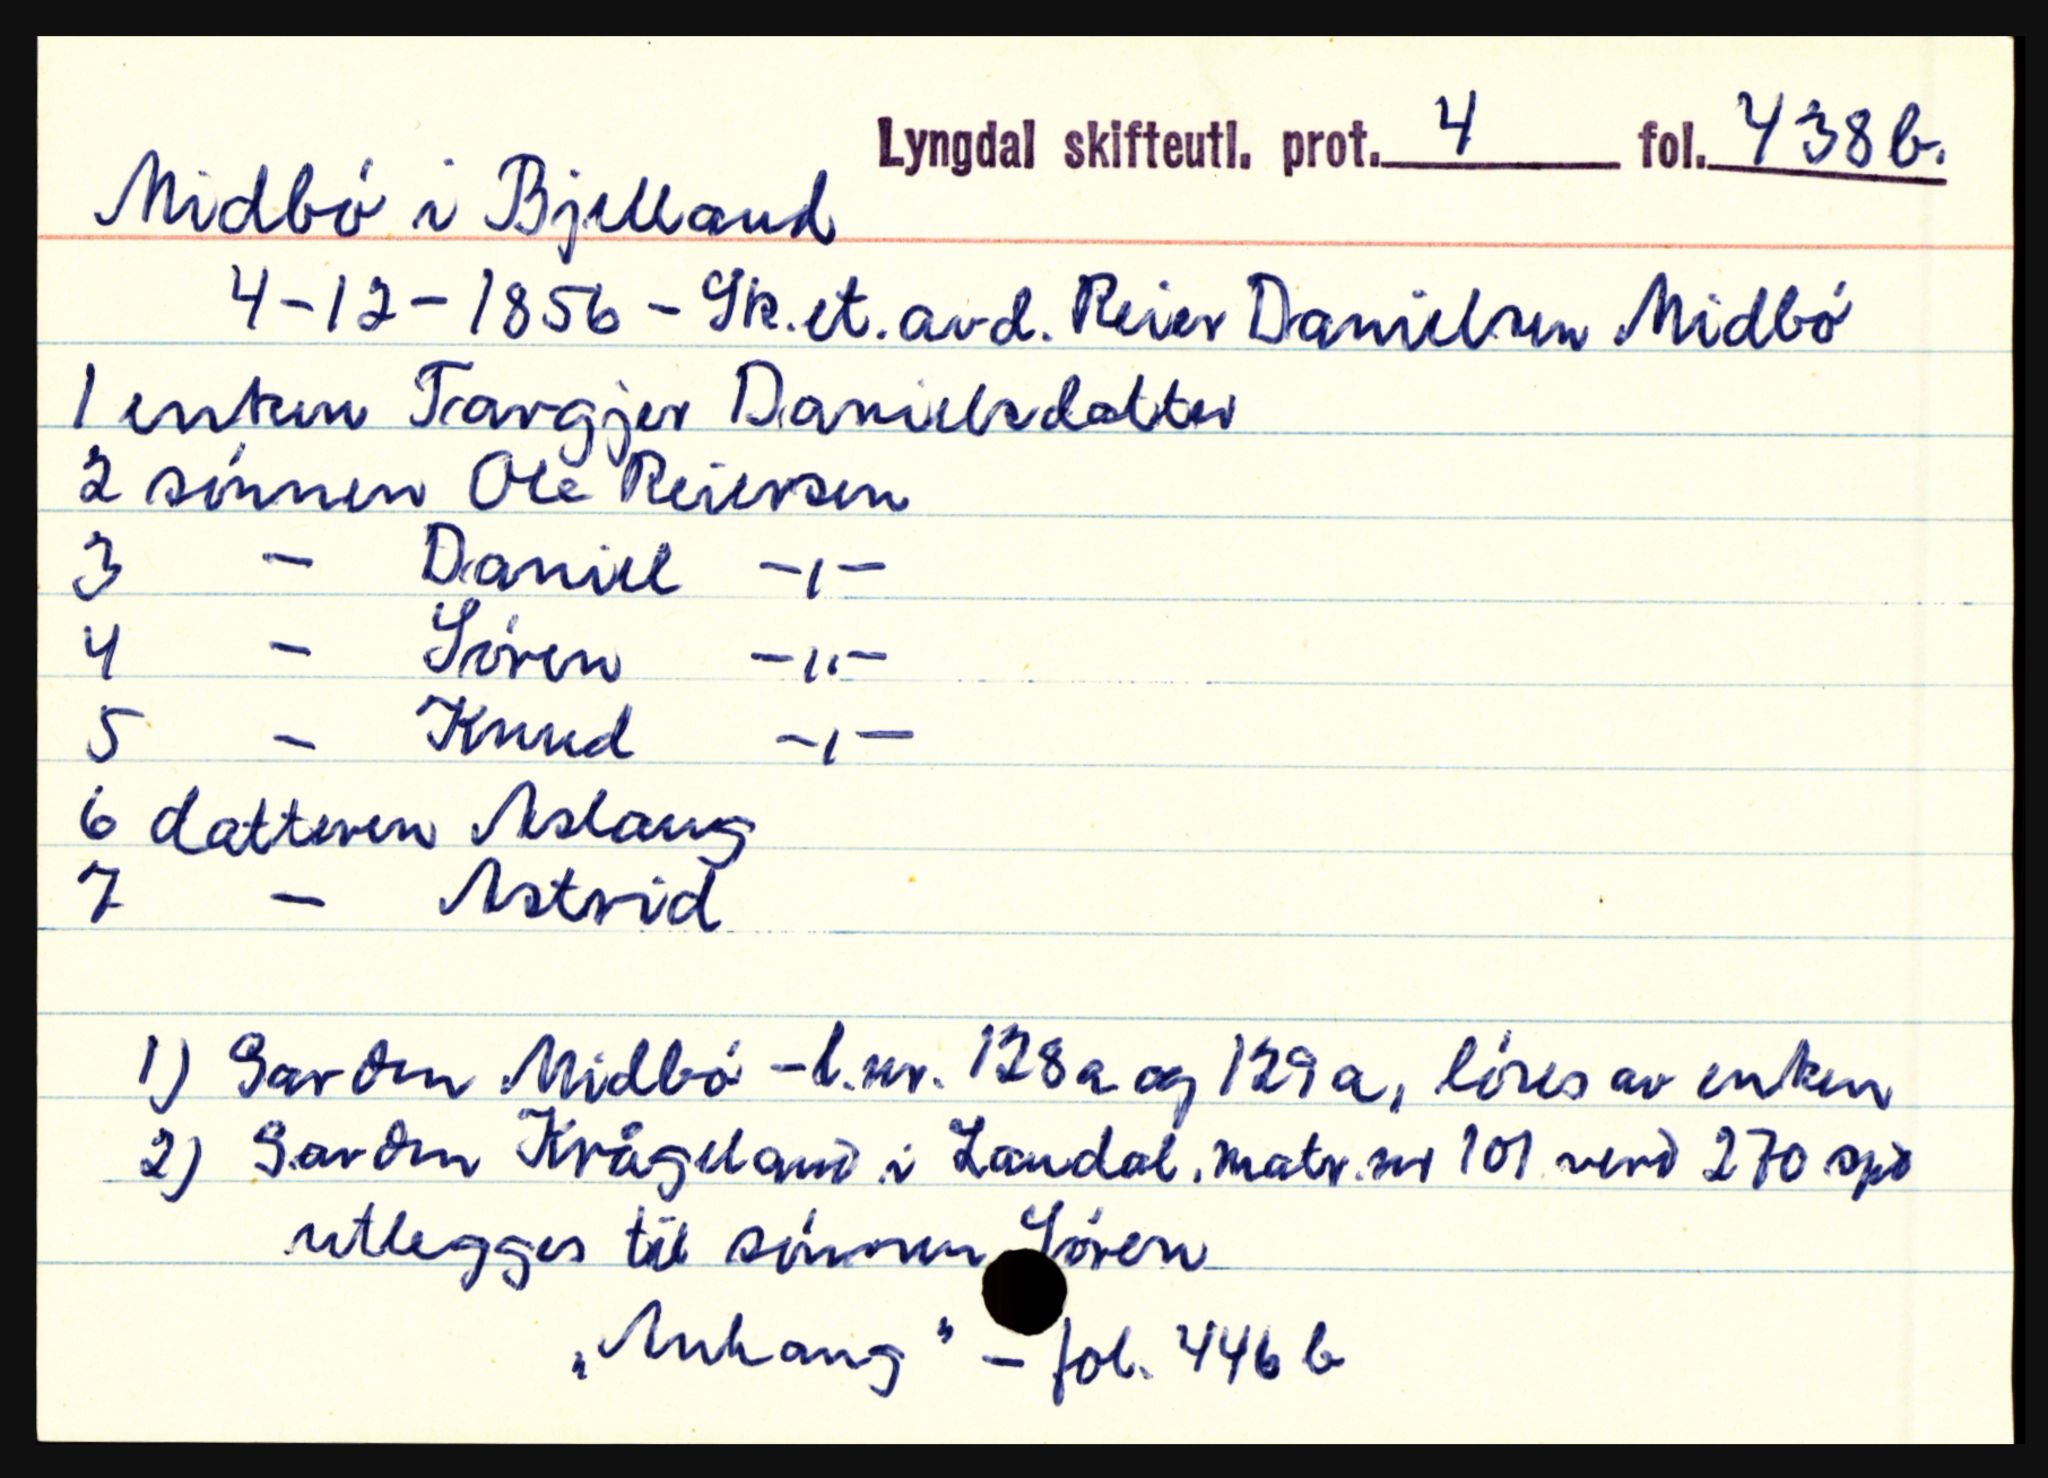 Lyngdal skifteutl. prot. 4 fol. 438b.
Midbó i Bjelland
4-12-1856 - Sk. et. avd. Reier Danielsen Midbó
1 enken Targjer Danielsdatter
2 sónnen Ole Reiersen
3 - Daniel -"-
4 - Sóren -"-
5 - Knud -"-
6 datteren Aslaug
7 - Astrid
1) Garden Midbó - l.nr. 128a og 129a, lóses av enken
2) Garden Krågeland i Laudal, matr.nr 101 verd 270 spd
utlegges til sónnen Sóren
„Anhang" - fol. 446 b